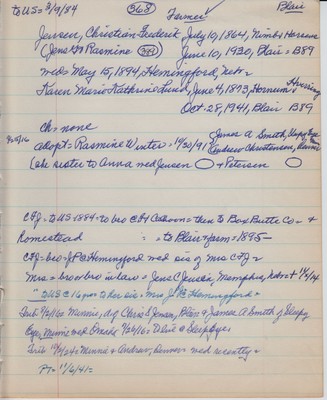 to US = 3/9/84 (368) Farmer Blair
Jensen, Christian Frederik July 10, 1864, Nimbs Horsens
(Jens Gr Rasmine (399) June 10, 1930, Blair = B89
wed = May 15, 1894, Hemingford, Nebr =
Karen Marie Katherine Lund, June 4, 1893, Hornum Hjorring
Oct = 28, 1941, Blair B89
ch = none
adopt = Rasmine Winter = 10/30/91 James A Smith, Sleepy Eye
Andrew Christensen,
sister to Anna wed Jensen + Petersen
CFJ = to US = 1884 = to bro then to Box Butte Co = +
homestead = = to Blair = farm = 1895 =
CFJ = bro = J PC Hemingford wed sis of Mrs CFJ =
Mrs = bro in law = Jens C Jensen, Memphis, Nebr = t
to US C 16 yrs = to her sis = Mrs J PC Hemingford =
Trib Minnie, d of Chris F Jensen, Blair + James A Smith of Sleepy
Eye, Minn = wed Omaha 9/20/16 = to live @ Sleepy Eye =
Trib = Minnie + Andrew, wed recently =
11/6/41 =